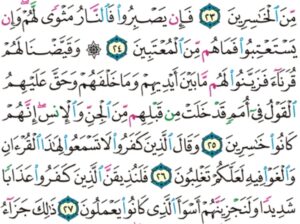 مِّنَ ٱلْخَٰسِرِينَ ٢٣ فَإِن يَصْبِرُوا۟ فَٱلنَّارُ مَثْوًى لَّهُمْ ۖ وَإِن
يَسْتَعْتِبُوا۟ فَمَا هُم مِّنَ ٱلْمُعْتَبِينَ ٢٤ ۞ وَقَيَّضْنَا لَهُمْ
قُرَنَآءَ فَزَيَّنُوا۟ لَهُم مَّا بَيْنَ أَيْدِيهِمْ وَمَا خَلْفَهُمْ وَحَقَّ عَلَيْهِمُ
ٱلْقَوْلُ فِىٓ أُمَمٍ قَدْ خَلَتْ مِن قَبْلِهِم مِّنَ ٱلْجِنِّ وَٱلْإِنسِ ۖ إِنَّهُمْ
كَانُوا۟ خَٰسِرِينَ ٢٥ وَقَالَ ٱلَّذِينَ كَفَرُوا۟ لَا تَسْمَعُوا۟ لِهَٰذَا ٱلْقُرْءَانِ
وَٱلْغَوْا۟ فِيهِ لَعَلَّكُمْ تَغْلِبُونَ ٢٦ فَلَنُذِيقَنَّ ٱلَّذِينَ كَفَرُوا۟ عَذَابًا
شَدِيدًا وَلَنَجْزِيَنَّهُمْ أَسْوَأَ ٱلَّذِى كَانُوا۟ يَعْمَلُونَ ٢٧ ذَٰلِكَ جَزَآءُ